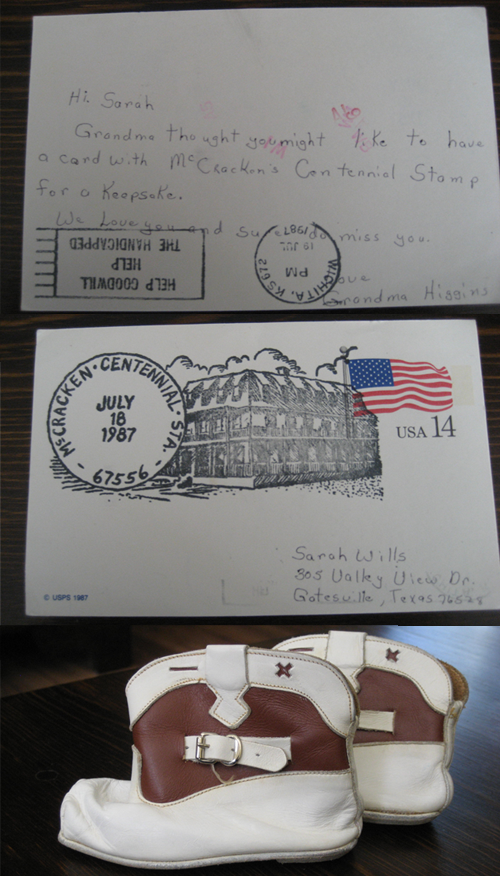 Hi Sarah
Grandma thought you might like to have
a card with McCracken's Centennial Stamp
for a Keepsake.
We Love you and su do miss you.
Love
Grandma Higgins
HELP GOODWILL
HELP
THE HANDICAPPED
WICHITA, KS 672
PM
19 JUL
1987
McCRACKEN • CENTENNIAL • STA.
JULY
18
1987
- 67556 -
USA 14
Sarah Wills
305 Valley View Dr.
Gatesville, Texas 76528
© USPS 1987